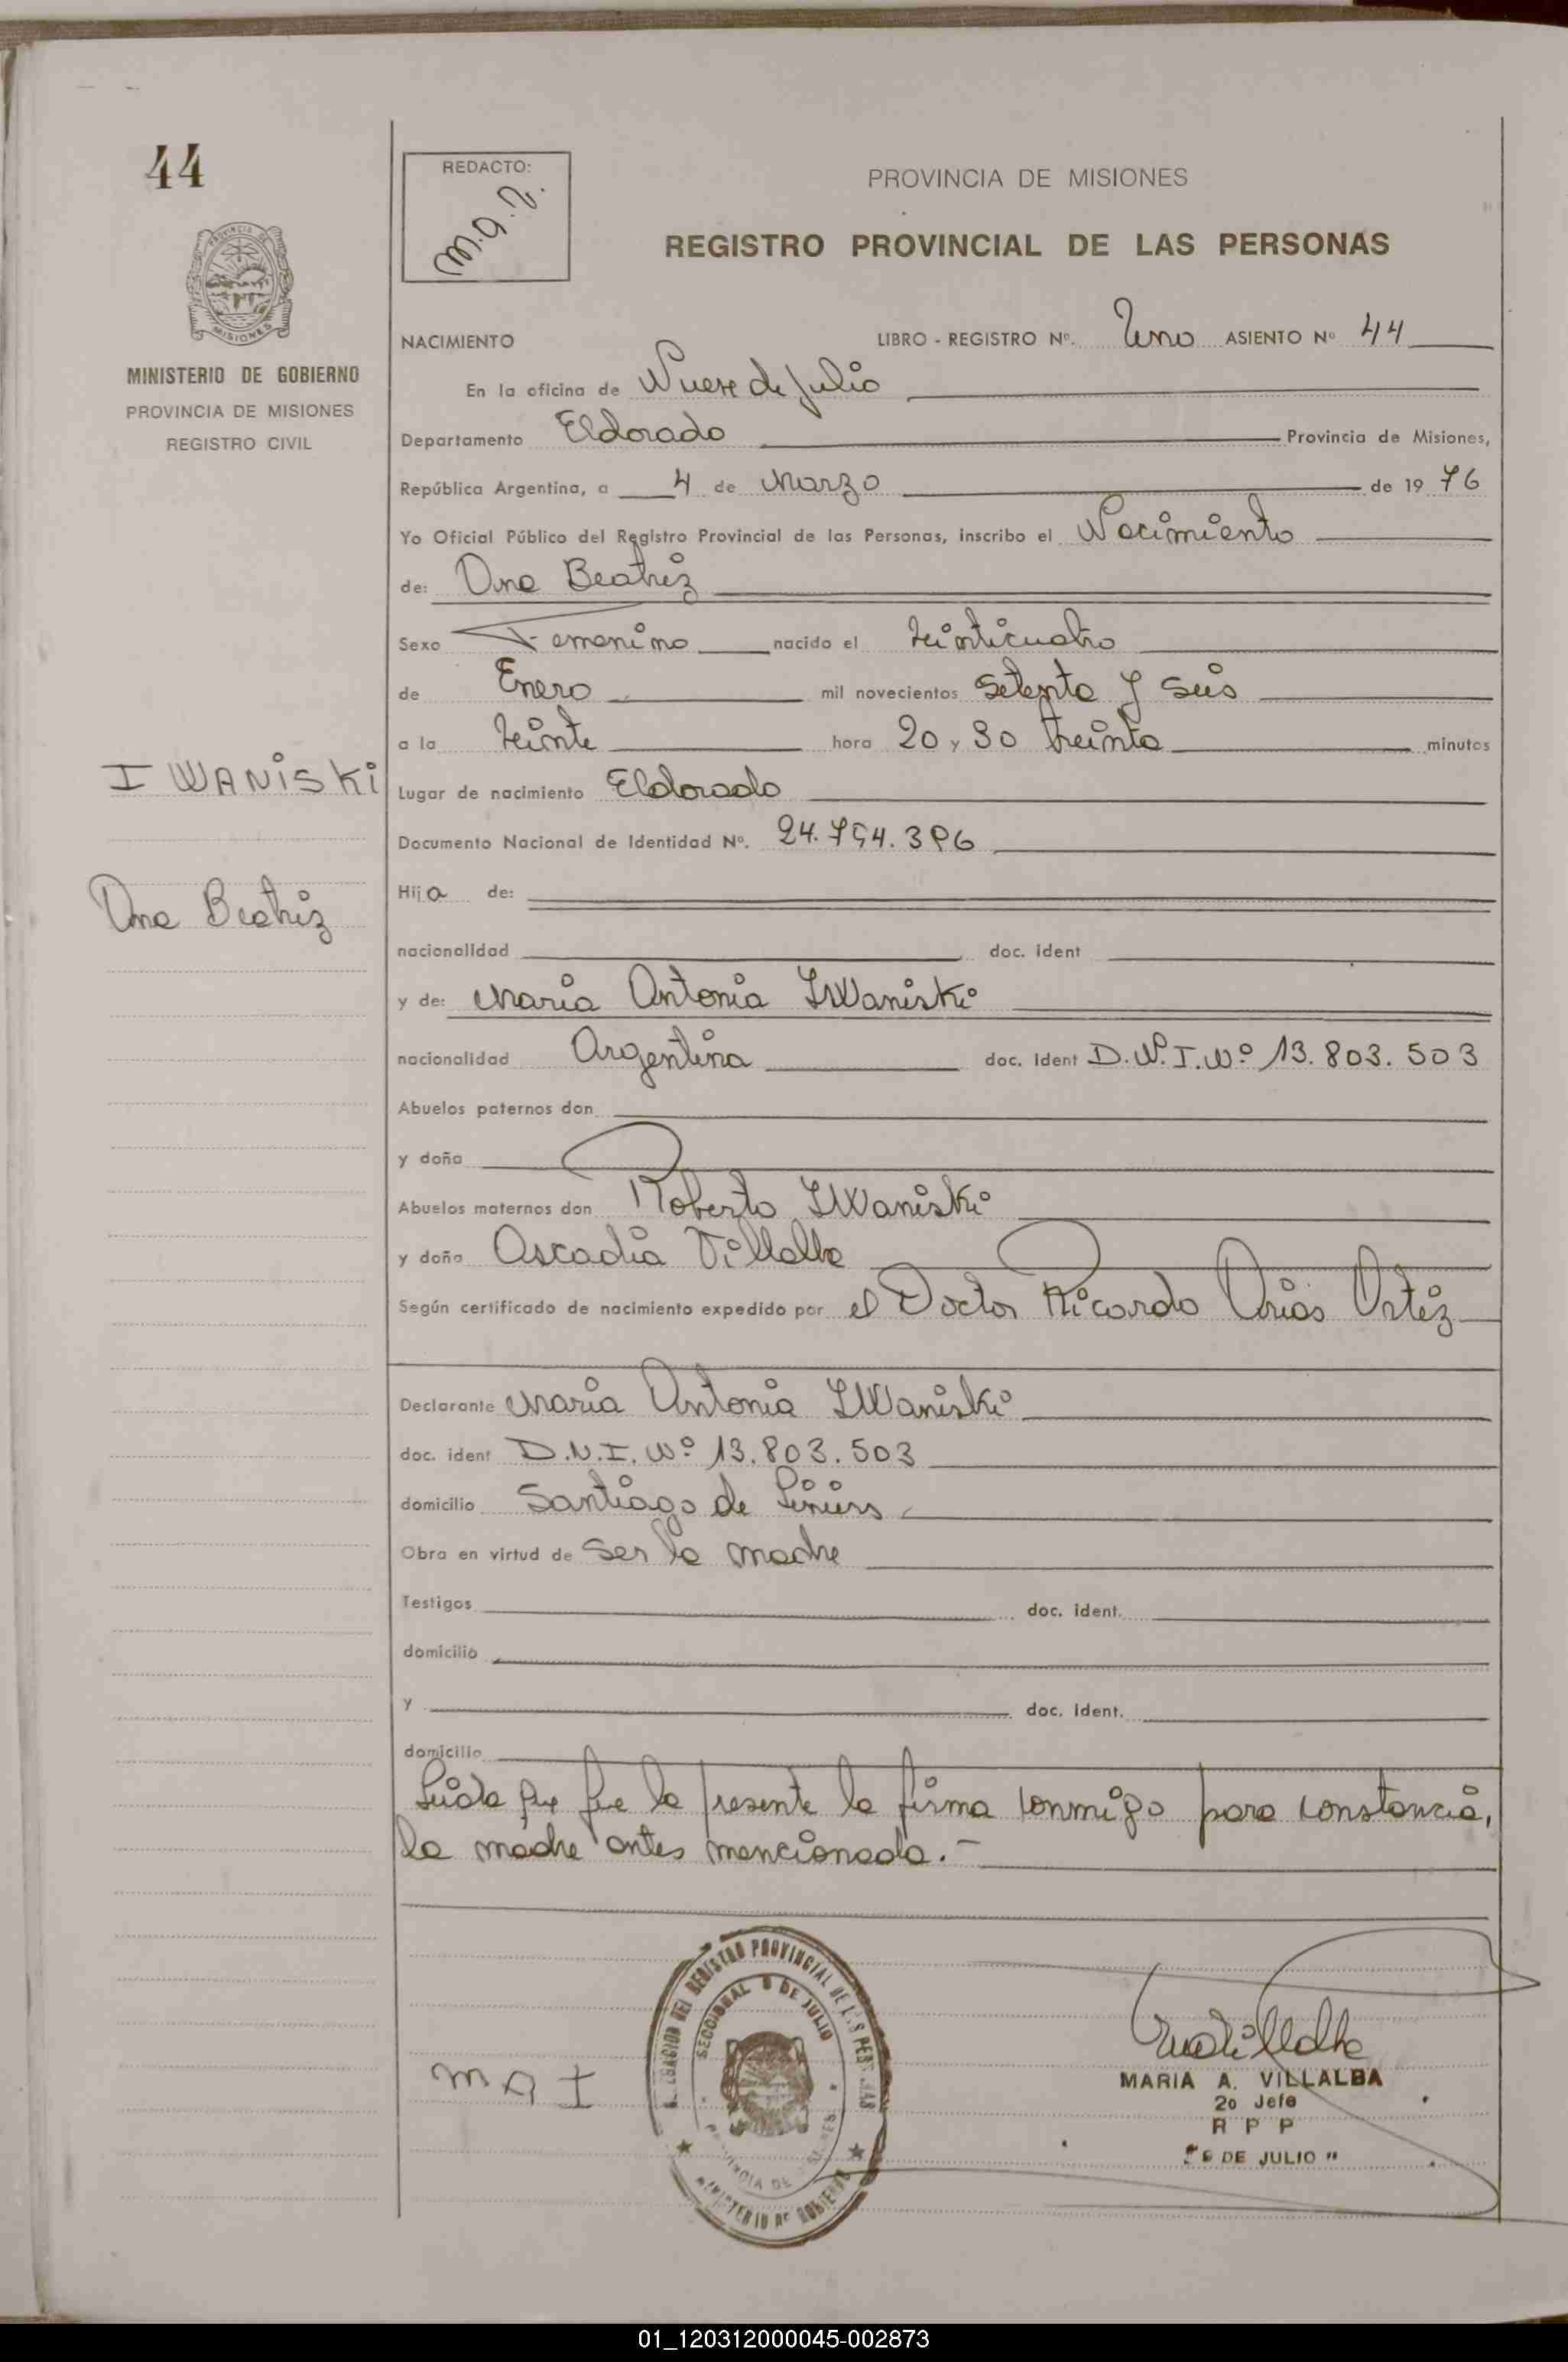 44
REDACTO:
M.A.V.
PROVINCIA DE MISIONES
REGISTRO PROVINCIAL DE LAS PERSONAS
PROVINCIA DE
MISIONES
MINISTERIO DE GOBIERNO
PROVINCIA DE MISIONES
REGISTRO CIVIL
NACIMIENTO LIBRO - REGISTRO Nº. Uno ASIENTO Nº 44
En la oficina de Nueve de Julio
Departamento Eldorado Provincia de Misiones,
República Argentina, a 4 de Marzo de 19 76
Yo Oficial Público del Registro Provincial de las Personas, inscribo el Nacimiento
de: Ana Beatriz
Sexo Femenino nacido el Veinticuatro
de Enero mil novecientos setenta y seis
a la veinte hora 20 y 30 treinta minutos
IWANISKI
Lugar de nacimiento Eldorado
Documento Nacional de Identidad Nº. 24.754.396
Ana Beatriz
Hija de:
nacionalidad doc. ident
y de: Maria Antonia IWaniski
nacionalidad Argentina doc. ident D.N.I.Nº 13.803.503
Abuelos paternos don
y doña
Abuelos maternos don Roberto IWaniski
y doña Ascadia Villalba
Según certificado de nacimiento expedido por el Doctor Ricardo Arias Ortiz
Declarante Maria Antonia IWaniski
doc. ident D.N.I. Nº 13.803.503
domicilio Santiago de Liniers
Obra en virtud de ser la madre
Testigos doc. ident.
domicilio
y doc. ident.
domicilio
Leida que fue la presente la firma conmigo para constancia,
la madre antes mencionada.-
DELEGACION DEL REGISTRO PROVINCIAL DE LAS PERSONAS
SECCIONAL 9 DE JULIO
PROVINCIA DE MISIONES
MINISTERIO DE GOBIERNO
M A I
MAVillalba
MARIA A. VILLALBA
2o Jefe
R P P
"9 DE JULIO"
01_120312000045-002873